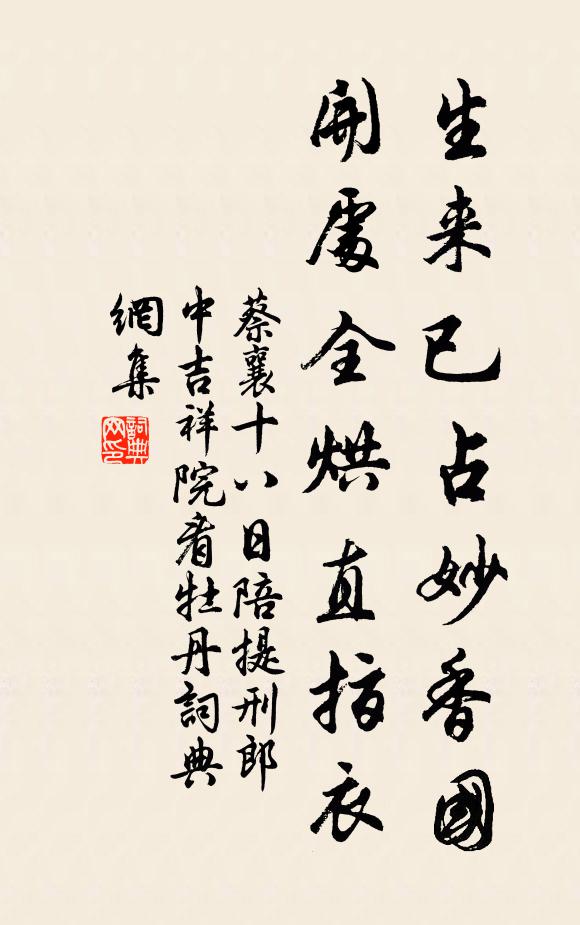 生来已占妙香國
開處全烘直指衣
蔡襄十八日陪提刑郎
中吉祥院看牡丹詞典
網集
詞典
网印